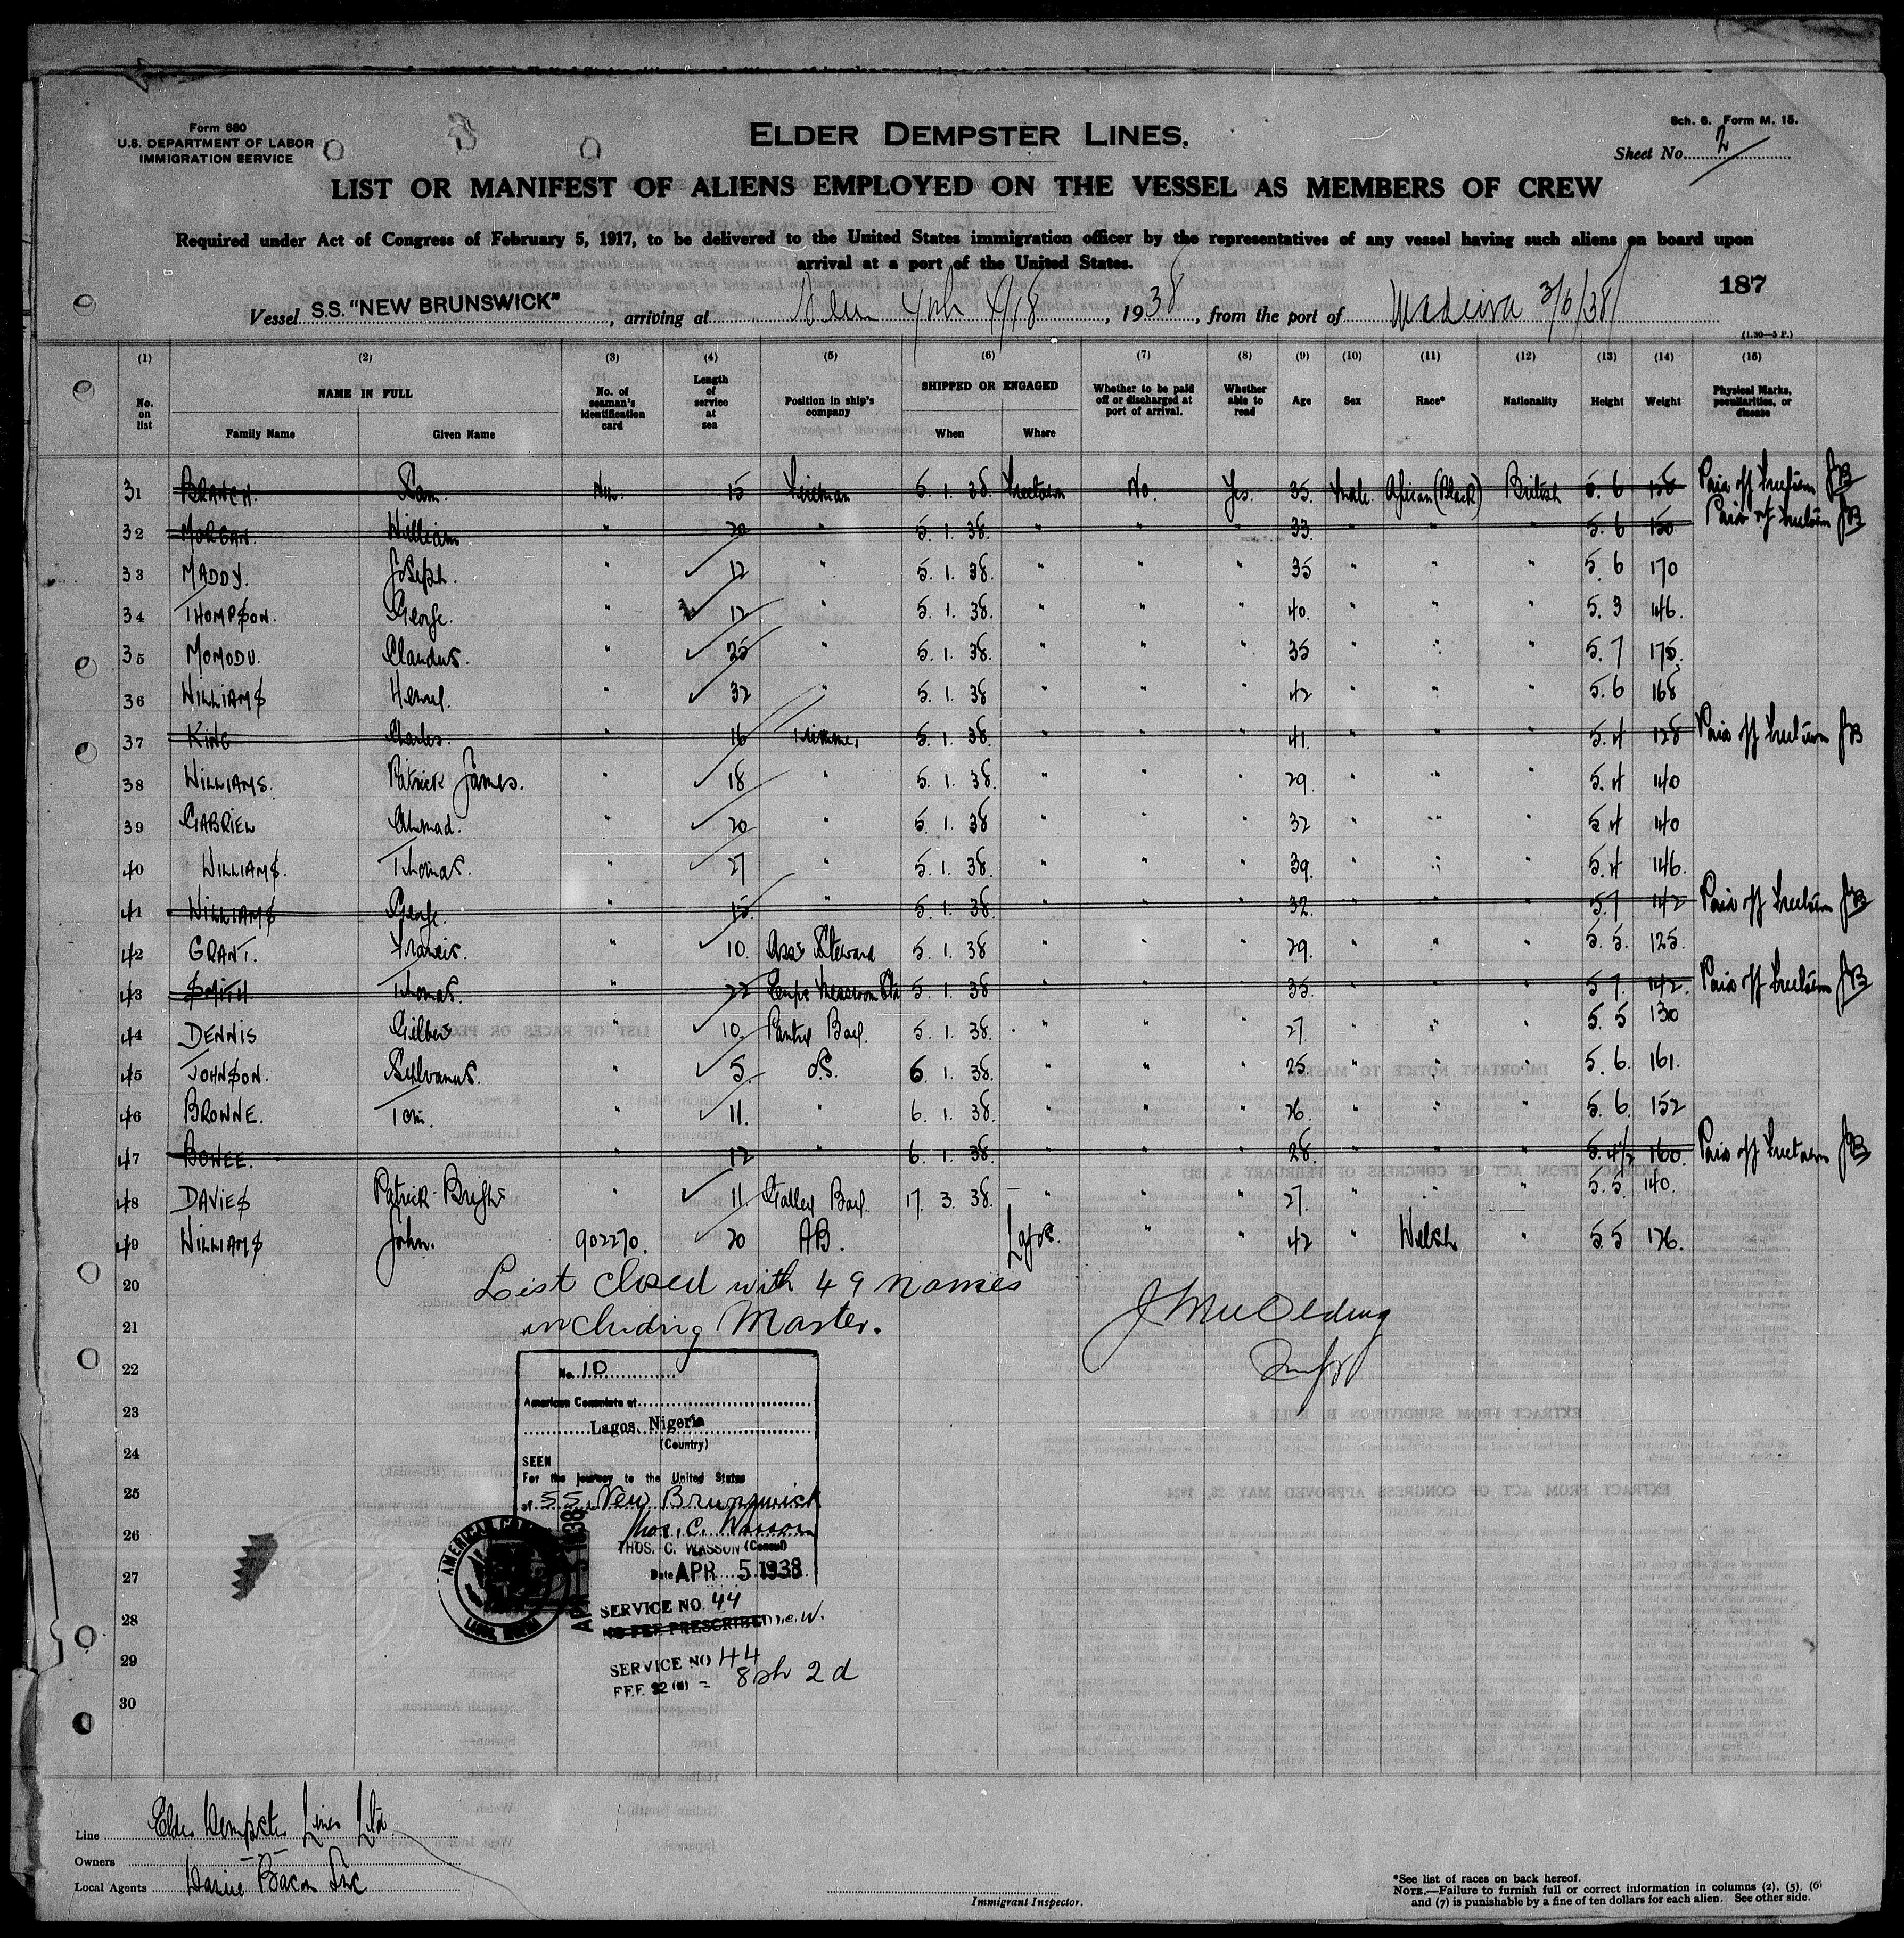 Form 680
U.S. DEPARTMENT OF LABOR
IMMIGRATION SERVICE
ELDER DEMPSTER LINES.
Sch. 6. Form M. 15.
Sheet No. 2
LIST OR MANIFEST OF ALIENS EMPLOYED ON THE VESSEL AS MEMBERS OF CREW
Required under Act of Congress of February 5, 1917, to be delivered to the United States immigration officer by the representatives of any vessel having such aliens on board upon
arrival at a port of the United States.
187
Vessel S.S. "NEW BRUNSWICK", arriving at New York, 1938, from the port of Madeira
(1.30—5 P.)
(1) (2) (3) (4) (5) (6) (7) (8) (9) (10) (11) (12) (13) (14) (15)
No. on list NAME IN FULL Family Name Given Name No. of seaman's identification card Length of service at sea Position in ship's company SHIPPED OR ENGAGED When Where Whether to be paid off or discharged at port of arrival. Whether able to read Age Sex Race* Nationality Height Weight Physical Marks, peculiarities, or disease
31 BRANCH. Sam. 15 Fireman 5. 1. 38. Freetown No. Yes. 35. Male. African (Black) British 5. 6 158 Paid off Freetown JB
32 MORGAN. William " 20 " 5. 1. 38. " " " 33. " " " 5. 6 150 Paid off Freetown JB
33 MADDY. Joseph. " 12 " 5. 1. 38. " " " 35 " " " 5. 6 170
34 THOMPSON. George. " 12 " 5. 1. 38. " " " 40. " " " 5. 3 146.
35 MOMODU. Claudus. " 25 " 5. 1. 38. " " " 35 " " " 5. 7 175.
36 WILLIAMS " 32 " 5. 1. 38 " " " 42 " " " 5. 6 168
37 KING Charles. " 16 Trimmer 5. 1. 38. " " " 41. " " " 5. 4 128 Paid off Freetown JB
38 WILLIAMS. Patrick James. " 18 " 5. 1. 38. " " " 29. " " " 5. 4 140
39 GABRIEL Ahmad. " 20 " 5. 1. 38 " " " 32 " " " 5 4 140
40 WILLIAMS. Thomas. " 27 " 5. 1. 38. " " " 39. " " " 5. 4 146.
41 WILLIAMS George. " 15. " 5. 1. 38. " " " 32. " " " 5. 7 142 Paid off Freetown JB
42 GRANT. Francis. " 10. Asst Steward 5. 1. 38 " " " 29. " " " 5. 5. 125.
43 SMITH Thomas. " 22 5. 1. 38 " " " 35. " " " 5 7. 142. Paid off Freetown JB
44 DENNIS Gilbert " 10. Pantry Boy. 5. 1. 38. " " " 27. " " " 5. 5 130
45 JOHNSON. Sylvanus. " 5. O.S. 6. 1. 38. " " " 25. " " " 5. 6. 161.
46 BROWNE. Tom. " 11. " 6. 1. 38. " " " 26. " " " 5. 6. 152
47 BOWEE. 12 " 6. 1. 38. " " " 28. " " " 5. 4½ 160. Paid off Freetown JB
48 DAVIES Patrick Bright " 11. Galley Boy. 17. 3. 38. " " " 27. " " " 5. 5. 140.
49 WILLIAMS John. 902270. 20 AB. Lagos. " " 42 " Welsh " 5. 5 176.
20 List closed with 49 names
21 including Master.
22
23
24
25
26
27
28
29
30
No. 10
American Consulate at
Lagos, Nigeria
(Country)
SEEN
For the journey to the United States
of SS. New Brunswick
Thos. C. Wasson
THOS. C. WASSON (Consul)
Date APR 5 1938
SERVICE NO. 44
NO FEE PRESCRIBED
SERVICE NO 44
8sh 2d
Line Elder Dempster Lines Ltd.
Owners
Local Agents
Immigrant Inspector.
*See list of races on back hereof.
NOTE.—Failure to furnish full or correct information in columns (2), (5), (6)
and (7) is punishable by a fine of ten dollars for each alien. See other side.